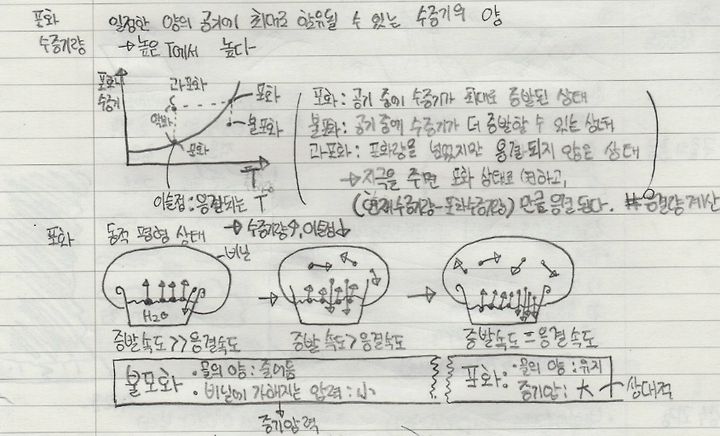 포화 일정한 양의 공기에 최대로 함유될 수 있는 수증기의 양
수증기량 → 높은 T에서 높다
포화 수증기 과포화 포화 불포화 포화 T
이슬점 : 응결되는 T
포화 : 공기 중에 수증기가 최대로 증발된 상태
불포화 : 공기 중에 수증기가 더 증발할 수 있는 상태
과포화 : 포화량을 넘었지만 응결되지 않은 상태
→ 자극을 주면 포화 상태로 변하고,
(현재수증기량-포화수증기량) 만큼 응결된다. # 응결량 계산
포화 동적 평형 상태 → 수증기량↑, 이슬점↓
비닐
H2O
증발속도>>응결속도 증발속도>응결속도 증발속도=응결속도
불포화 · 물의 양 : 줄어듬
· 비닐에 가해지는 압력 : 小
증기압력
포화: · 물의 양 : 유지
증기압 : 大 상대적